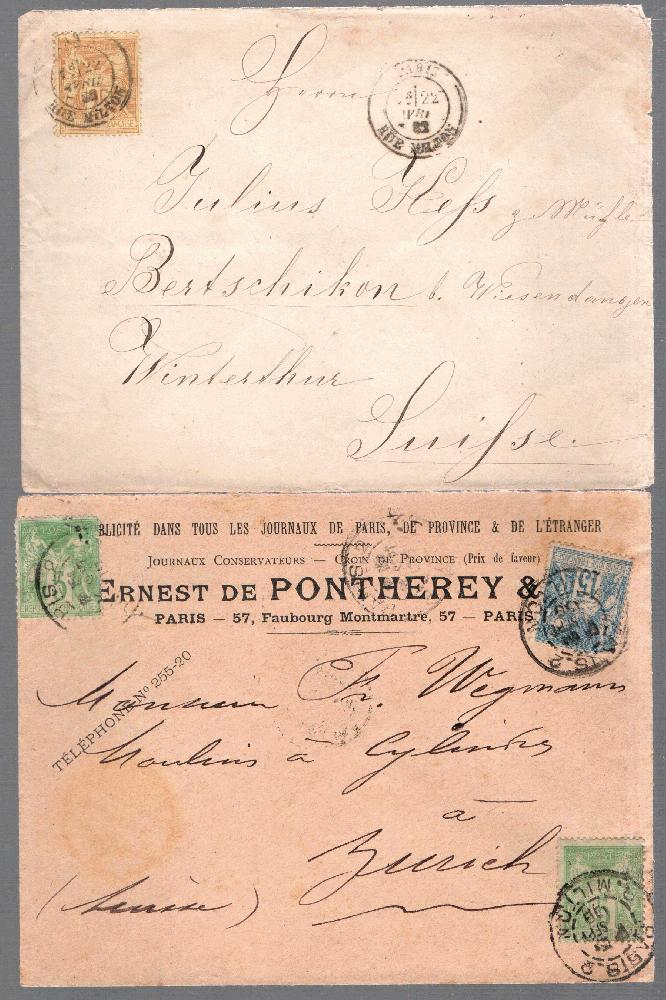 PARIS
22
RUE MILTON
PARIS
22
RUE MILTON
Herrn
Julius Hess z. Mühle
Bertschikon b. Wiesendangen
Winterthur
Suisse.
BLICITÉ DANS TOUS LES JOURNAUX DE PARIS, DE PROVINCE & DE L'ÉTRANGER
JOURNAUX CONSERVATEURS — CROIX DE PROVINCE (Prix de faveur)
ERNEST DE PONTHEREY &
PARIS — 57, Faubourg Montmartre, 57 — PARIS
15
TÉLÉPHONE Nº 255-20
Monsieur Fr. Wegmann
Moulins à Cylindres
à
Zurich
(Suisse)
PARIS-2
R. MILTON